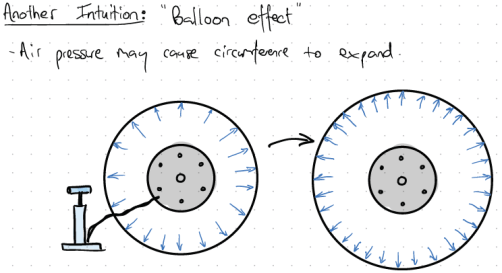 Another Intuition: "Balloon effect"
- Air pressure may cause circumference to expand.